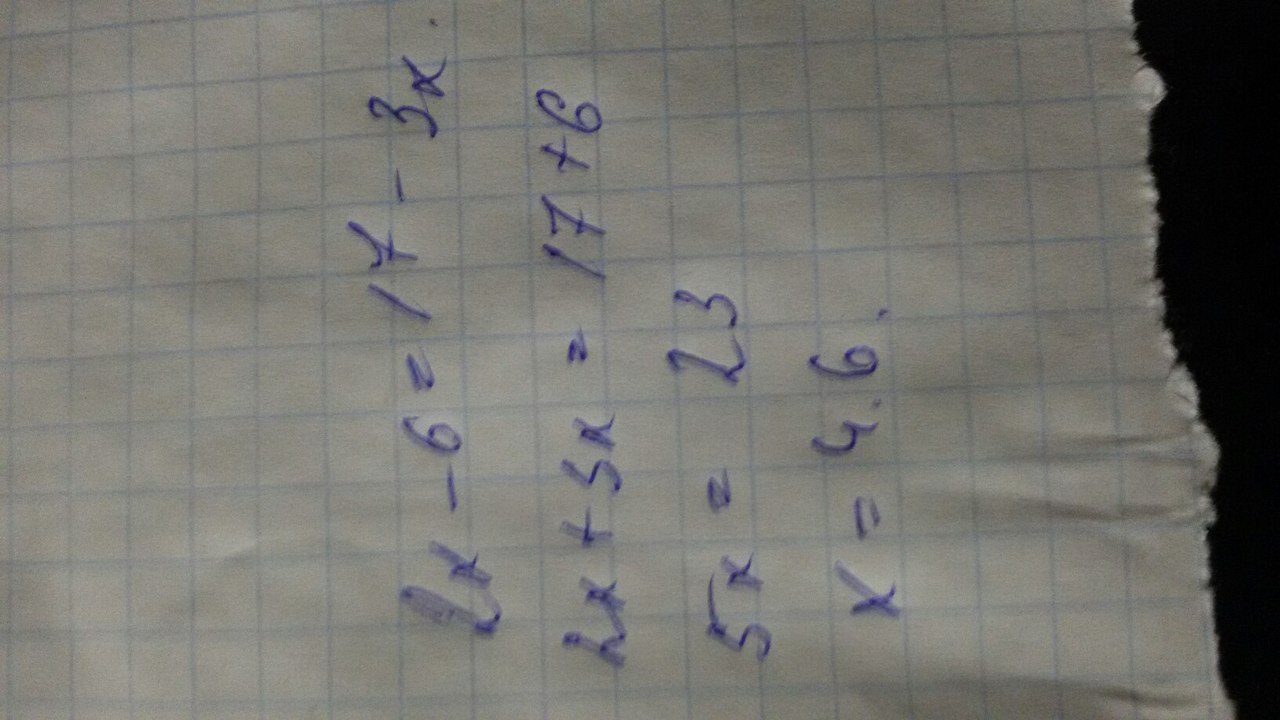 2x - 6 = 17 - 3x.
2x + 3x = 17 + 6
5x = 23
x = 4.6.